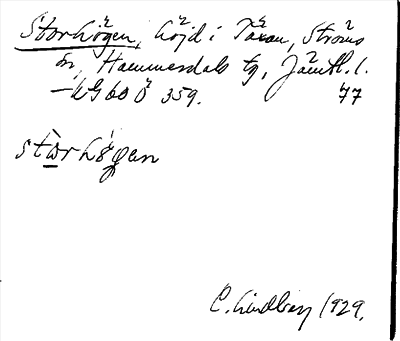 Storhögen, höjd i Täxan, Ströms
sn, Hammerdals tg, Jämtl. l.
–WG 60 Ö 359. 77
stɷ̀rhö́gən
C. Lindberg 1929.